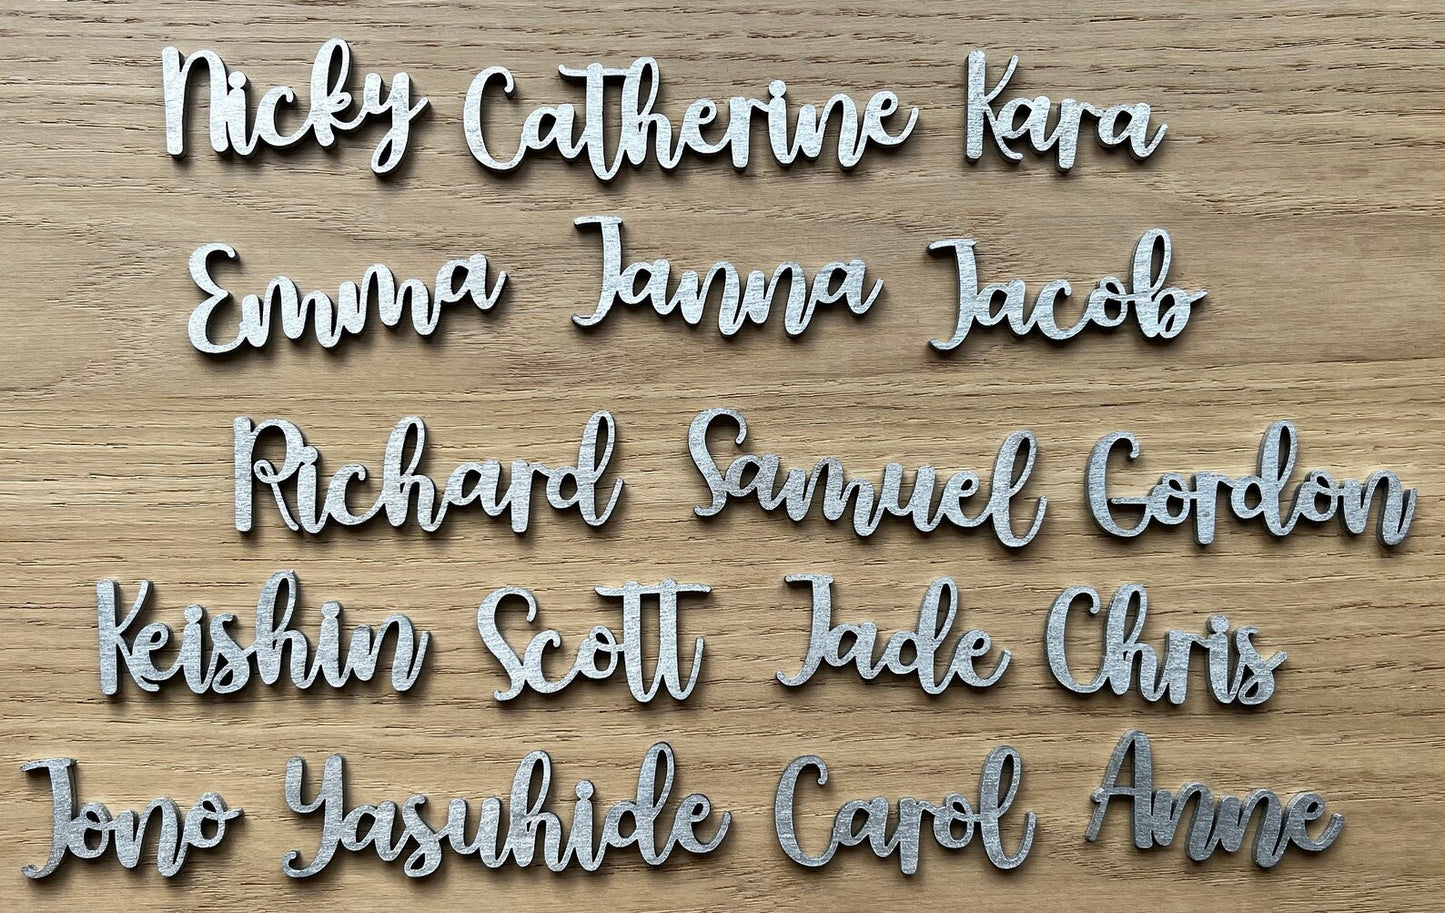 Nicky Catherine Kara
Emma Janna Jacob
Richard Samuel Gordon
Keishin Scott Jade Chris
Jono Yasuhide Carol Anne